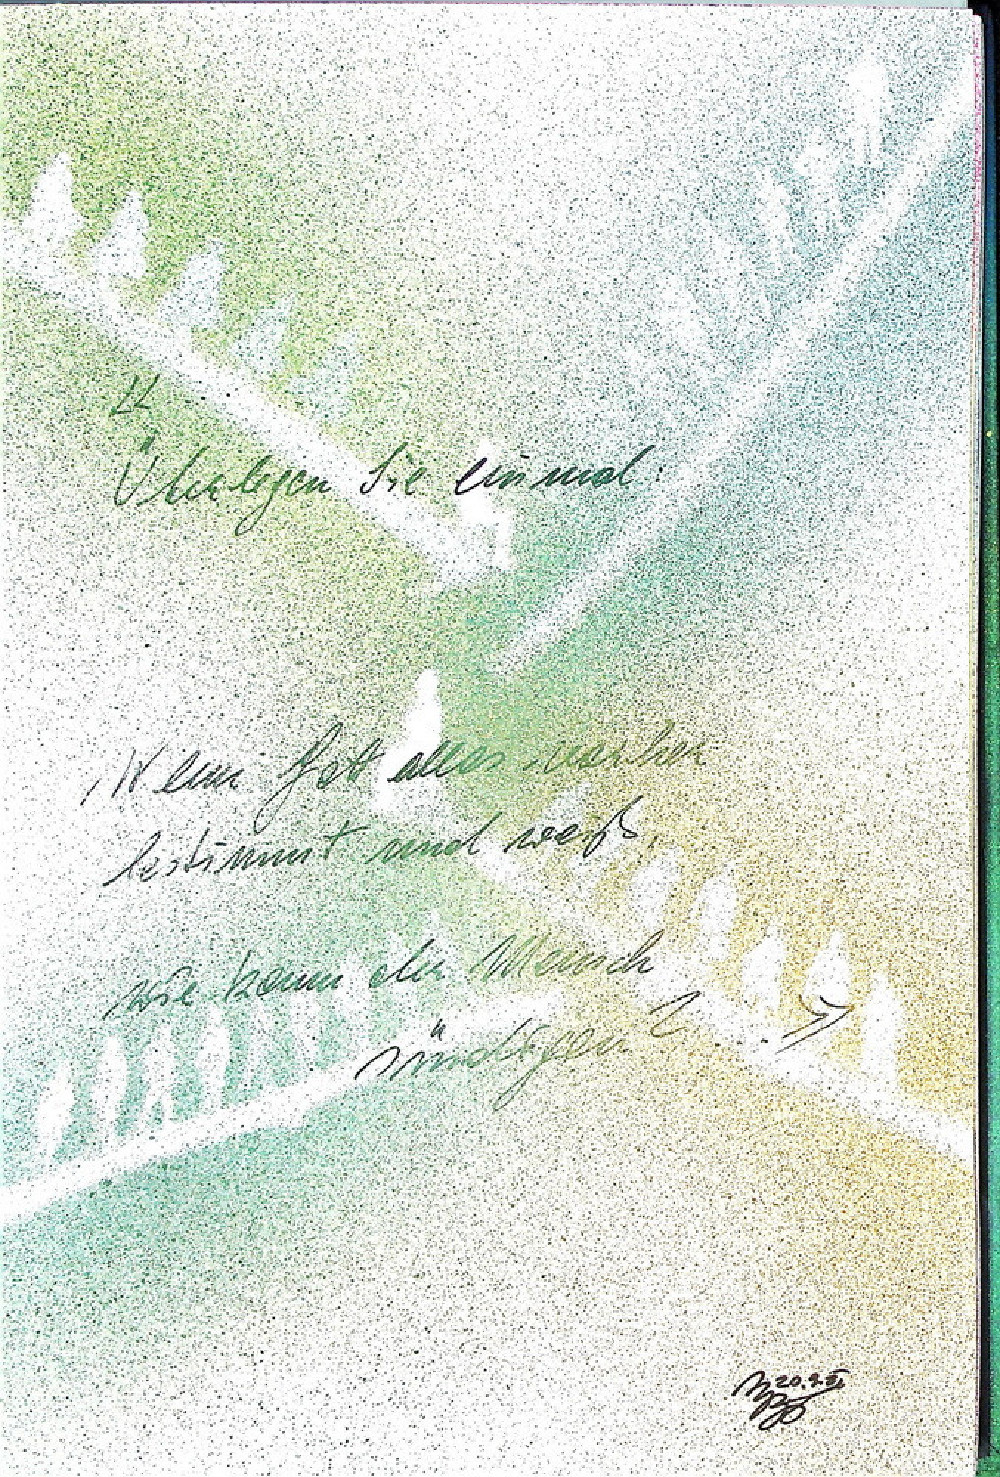 "
Überlegen Sie einmal:
Wenn Gott alles vorher
bestimmt und weiß,
wie kann der Mensch
sündigen?